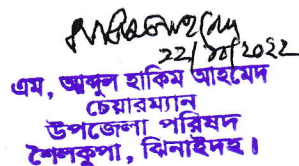 22/10/2022
এম, আব্দুল হাকিম আহমেদ
চেয়ারম্যান
উপজেলা পরিষদ
শৈলকুপা, ঝিনাইদহ।